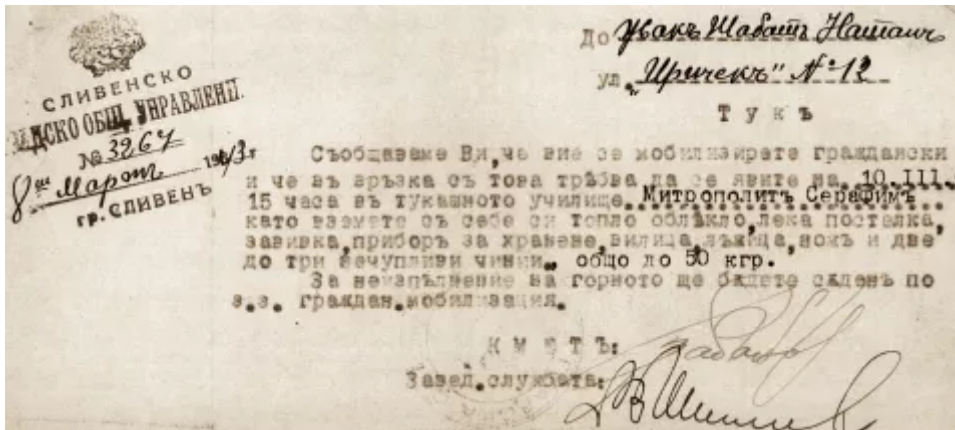 СЛИВЕНСКО
ГРАДСКО ОБЩ. УПРАВЛЕНИЕ
№ 3267
8 Мартъ 1943 г
гр. СЛИВЕНЪ
До Увакъ Шабатъ Натанъ
ул. „Иричекъ“ № 12
Т У К Ъ
Съобщаваме Ви, че вие се мобилизирате граждански
и че въ връзка съ това трѣбва да се явите на 10.III.
15 часа въ тукашното училище Митрополитъ Серафимъ
като вземете съ себе си топло облѣкло, лека постелка,
завивка, приборъ за хранене, вилица, лъжица, ножъ и две
до три нечупливи чинии. общо до 50 кгр.
За неизпълнение на горното ще бѫдете сѫденъ по
з.з. граждан. мобилизация.
К М Е Т Ъ:
Завед. службата: